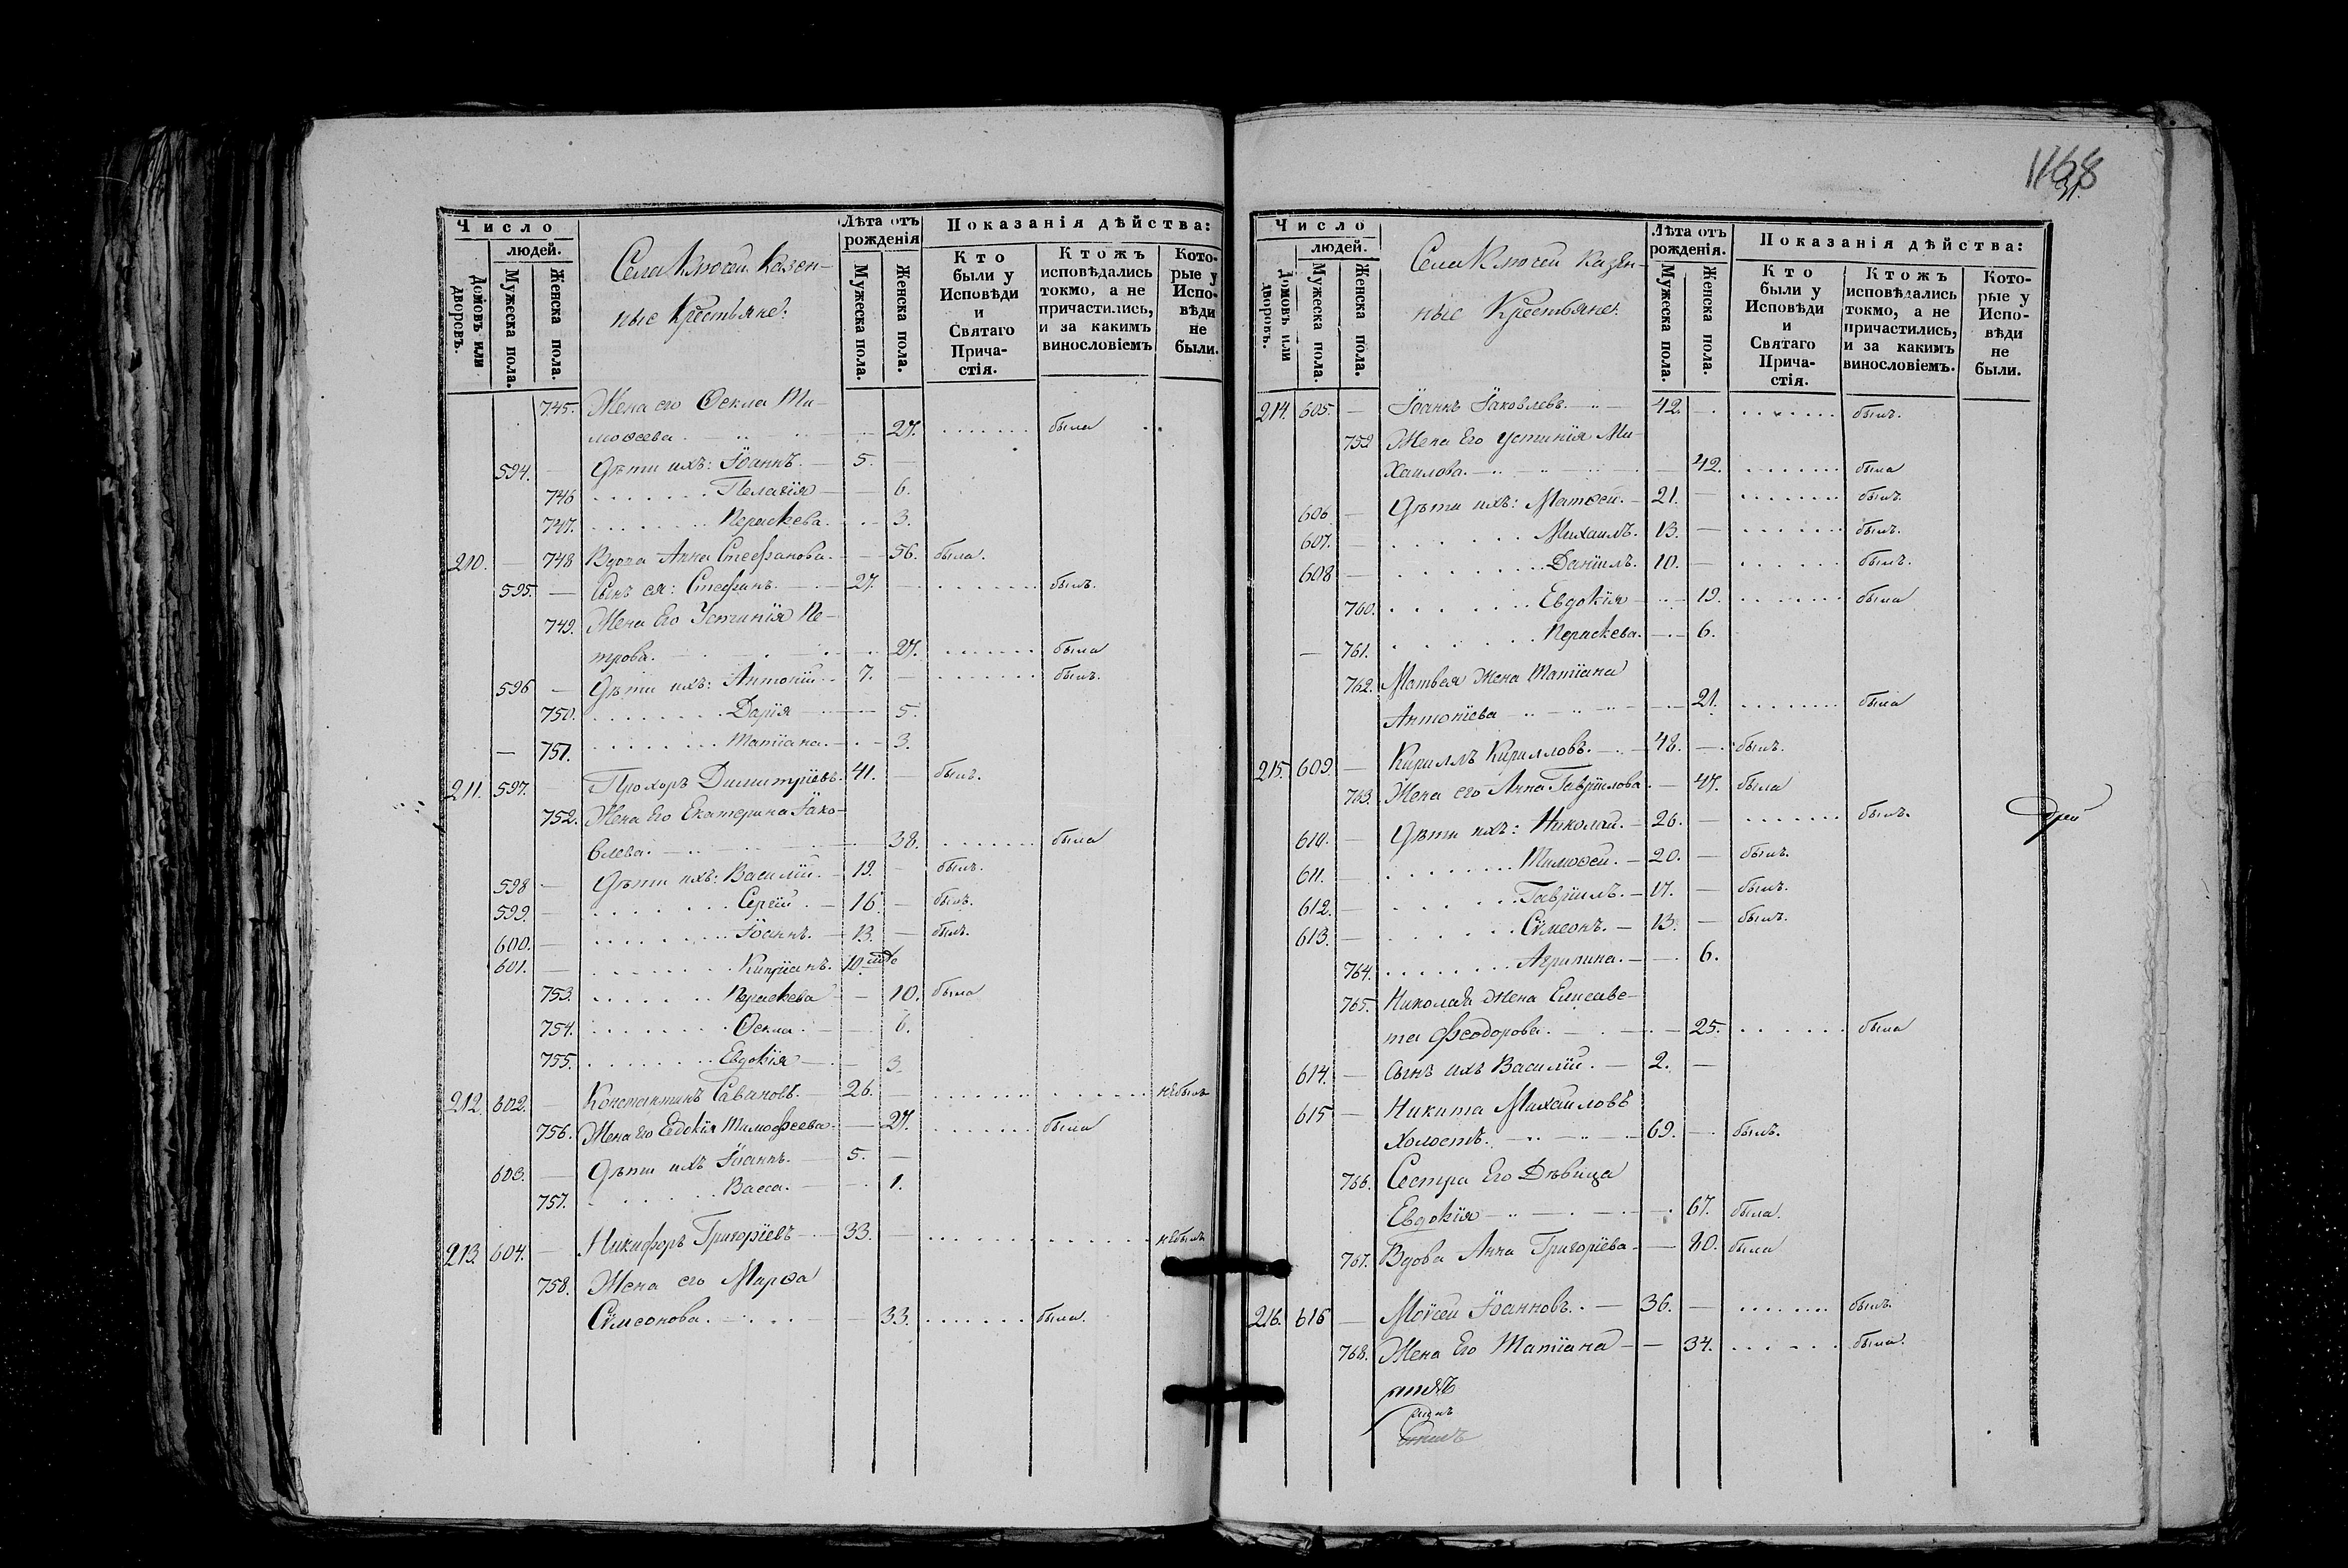 Число
людей.
Домовъ или дворовъ.
Мужеска пола.
Женска пола.
Села Ключей казен-
ные Крестьяне:
Лѣта отъ рожденія
Мужеска пола.
Женска пола.
Показанія дѣйства:
Кто были у Исповѣди и Святаго Прича-стія.
Ктожъ исповѣдались токмо, а не причастились, и за какимъ винословіемъ
Кото-рые у Испо-вѣди не были.
745. Жена его Ѳекла Ти-
моѳеева. 27. была
594. — Дѣти ихъ: Іоаннъ. — 5. —
746 Пелагія — — 6.
747. Параскева. — 3.
210. — 748 Вдова Анна Стефанова. — 56. была.
595. — Сынъ ея: Стефанъ. — 27. былъ.
749. Жена Его Устинія Пе-
трова. 27. была
596 — Дѣти ихъ: Антоній 7. — былъ.
750. Дарія — 5.
— 751. Татіана. — 3.
211. 597. — Прохоръ Димитріевъ. 41. — былъ.
752. Жена Его Екатерина Іако-
влева. 38. была
598 — Дѣти ихъ: Василій. — 19. — былъ.
599. — Сергій. — 16. — былъ.
600. — Іоаннъ. — 13. — былъ.
601. — Кипріанъ. 10.
753. Параскева — — 10. была
754. Ѳекла. — 6.
755. Евдокія — 3.
212. 602. — Константинъ Савановъ. — 26. — небылъ
756. Жена его Евдокія Тимофеева. — 27. была
603. — Дѣти ихъ Іоаннъ. — 5. —
757. Васса. — 1.
213. 604. — Никифоръ Григоріевъ — 33. — небылъ
758. Жена его Марѳа
Сѵмеонова. — 33. была.
1168
Число
людей.
Домовъ или дворовъ.
Мужеска пола.
Женска пола.
Села Ключей казен-
ные Крестьяне:
Лѣта отъ рожденія.
Мужеска пола.
Женска пола.
Показанія дѣйства:
Кто были у Исповѣди и Святаго Прича-стія.
Ктожъ исповѣдались токмо, а не причастились, и за какимъ винословіемъ.
Кото-рые у Испо-вѣди не были.
214. 605. — Іоаннъ Іаковлевъ. — 42. — былъ.
759 Жена Его Устинія Ми-
хаилова. — 42. была
606. — Дѣти ихъ: Матѳей. — 21. — былъ.
607. — Михаилъ. 13. — былъ.
608 — Даніилъ. 10. — былъ.
760. Евдокія — 19. была
— 761. Параскева. — 6.
762. Матвея жена Татіана
Антоніева — 21. была
215. 609. — Кириллъ Кирилловъ. — 48. — былъ.
763. Жена его Анна Гавріилова — 47. была
610. — Дѣти ихъ: Николай. — 26. — былъ.
611. — Тимоѳей. — 20. — былъ.
612. — Гавріилъ. — 17. — былъ.
613. — Сѵмеонъ. — 13. — былъ.
764. Агрипина. — 6.
765. Николая жена Елисаве-
та Феодорова. — 25. была
614. — Сынъ ихъ Василій. — 2. —
615 — Никита Михаиловъ
Холостъ. — 69. — былъ.
766. Сестра Его Дѣвица
Евдокія — 67. была.
767. Вдова Анна Григоріева — 80. была
216. 616 — Моѵсей Іоанновъ. — 36. — былъ.
768. Жена Его Татіана — 34. была.